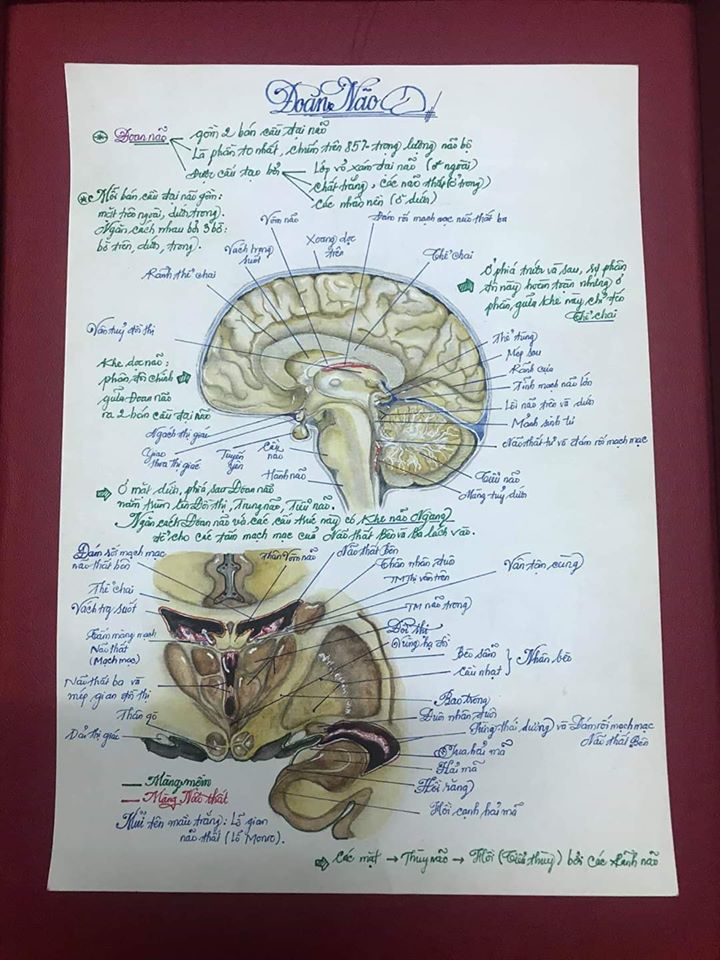 Đoan Não
Đoan não
gồm 2 bán cầu đại não
Là phần to nhất, chiếm trên 85% trọng lượng não bộ
Được cấu tạo bởi
Lớp vỏ xám đại não (ở ngoài)
Chất trắng, các não thất (ở trong)
Các nhân nền (ở dưới)
Mỗi bán cầu đại não gồm:
mặt trên ngoài, dưới, trong.
Ngăn cách nhau bởi 3 bờ:
bờ trên, dưới, trong.
Vòm não
Đám rối mạch mạc não thất ba
Vách trong suốt
Xoang dọc trên
Thể chai
Rãnh thể chai
Ở phía trước và sau, sự phân
đôi này hoàn toàn nhưng ở
phần giữa khe này, chỉ đến
Thể chai
Vân tuỷ đồi thị
Thể tùng
Mép sau
Rãnh cựa
Tĩnh mạch não lớn
Lồi não trên và dưới
Mảnh sinh tư
Não thất tư và đám rối mạch mạc
Khe dọc não:
phân đôi chính
giữa Đoan não
ra 2 bán cầu đại não
Ngách thị giác
Giao thoa thị giác
Tuyến yên
Cầu não
Hành não
Tiểu não
Màng tuỷ dưới
Ở mặt dưới, phía sau Đoan não
nằm trùm lên Đồi thị, Trung não, Tiểu não.
Ngăn cách Đoan não với các cấu trúc này có Khe não Ngang
để cho các tấm mạch mạc của Não thất Bên và Ba lách vào.
Đám rối mạch mạc
não thất bên
Thân Vòm não
Não thất Bên
Thân nhân đuôi
TM Thị vân trên
Vân tận cùng
Thể chai
Vách trg suốt
TM não trong
Tấm màng mạch
Não thất
(Mạch mạc)
Đồi thị
Vùng hạ đồi
Bèo sẫm
Cầu nhạt
Nhân bèo
Não thất ba và
mép gian đồi thị
Bao trong
Đuôi nhân đuôi
Thể gò
Sừng thái dương và Đám rối mạch mạc
Não thất Bên
Dải thị giác
Hải mã
Hồi răng
Hồi cạnh hải mã
Màng mềm
Màng Nội thất
Mũi tên màu trắng: Lỗ gian
não thất (Lỗ Monro).
Các mặt → Thùy não → Hồi (Tiểu thùy) bởi các rãnh não